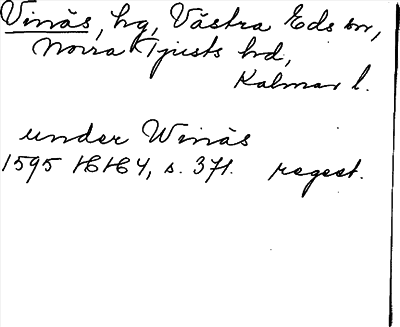 Vinäs, hg, Västra Eds sn,
Norra Tjusts hd,
Kalmar l.
under Winäs
1595 HH 4, s. 371. regest.